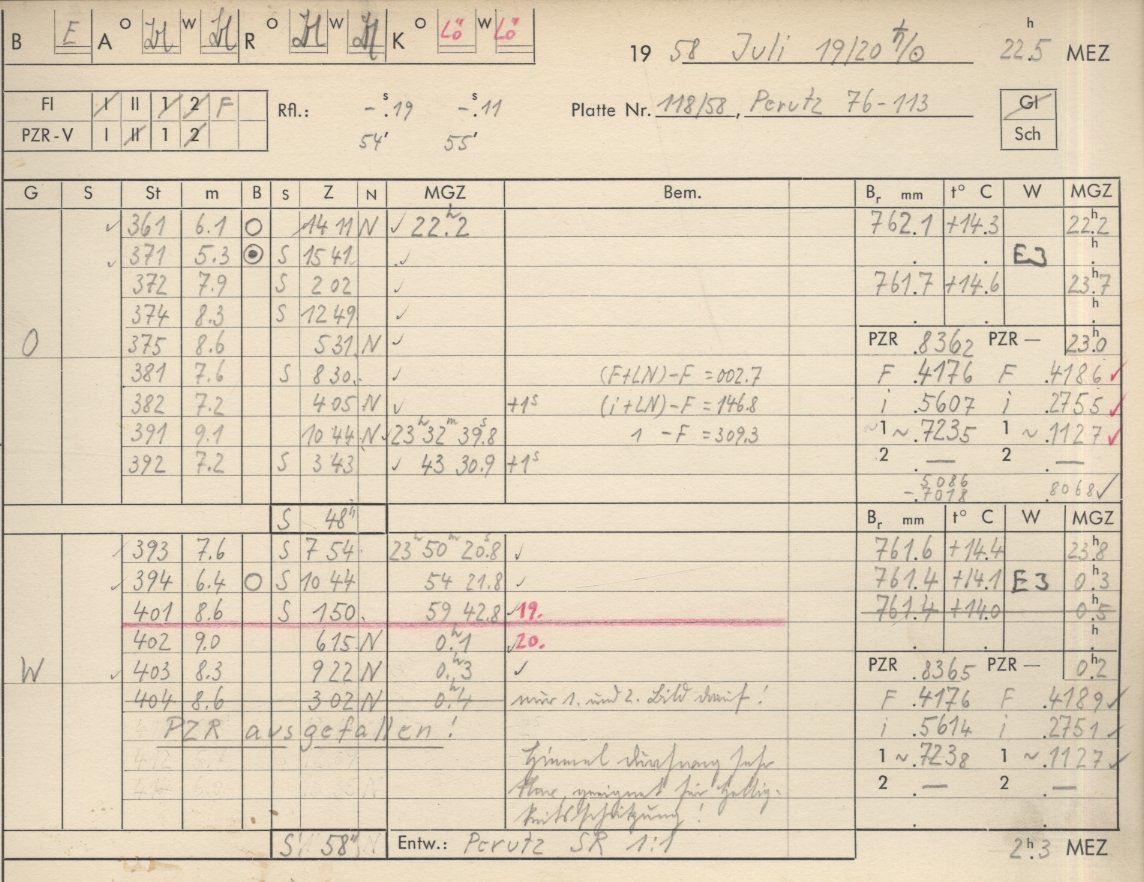 B E A O W R O W K O Lö W Lö
19 58 Juli 19/20 ♄/☉ 22.5 h MEZ
FI I II 1 2 F Rfl.: -.19 s -.11 s Platte Nr. 118/58, Perutz 76-113 Gl
PZR-V I II 1 2 54' 55' Sch
G S St m B S Z N MGZ Bem. Br mm t° C W MGZ
361 6.1 O 14 11 N ✓ 22.2 h 762.1 +14.3 22.2 h
371 5.3 ⊙ S 15 41 ✓ E3 h
372 7.9 S 2 02 ✓ 761.7 +14.6 23.7 h
374 8.3 S 12 49 ✓ h
O 375 8.6 5 31 N ✓ PZR .8362 PZR — 23.0 h
381 7.6 S 8 30 ✓ (F+LN)-F = 002.7 F .4176 F .4186 ✓
382 7.2 4 05 N ✓ +1s (i+LN)-F = 146.8 i .5607 i .2755 ✓
391 9.1 10 44 N ✓ 23h 32m 39.8s 1 -F = 309.3 1 ~.7235 1 ~.1127 ✓
392 7.2 S 3 43 ✓ 43 30.9 +1s 2 .— 2 .—
.5086
-.7018 .8068 ✓
S 48" Br mm t° C W MGZ
393 7.6 S 7 54 23h 50m 20.8s ✓ 761.6 +14.4 23.8 h
394 6.4 O S 10 44 54 21.8 ✓ 761.4 +14.1 E3 0.3 h
401 8.6 S 1 50 59 42.8 ✓ 19. 761.4 +14.0 0.5 h
402 9.0 6 15 N 0.1 h ✓ 20. h
W 403 8.3 9 22 N 0.3 h ✓ PZR .8365 PZR — 0.2 h
404 8.6 3 02 N 0.4 h nur 1. und 2. Bild drauf! F .4176 F .4189 ✓
PZR ausgefallen! i .5614 i .2751 ✓
Himmel durchweg sehr 1 ~.7238 1 ~.1127 ✓
klar, geeignet für Hellig- 2 .— 2 .—
keitsschätzung!
S 58" Entw.: Perutz SR 1:1 2.3 h MEZ